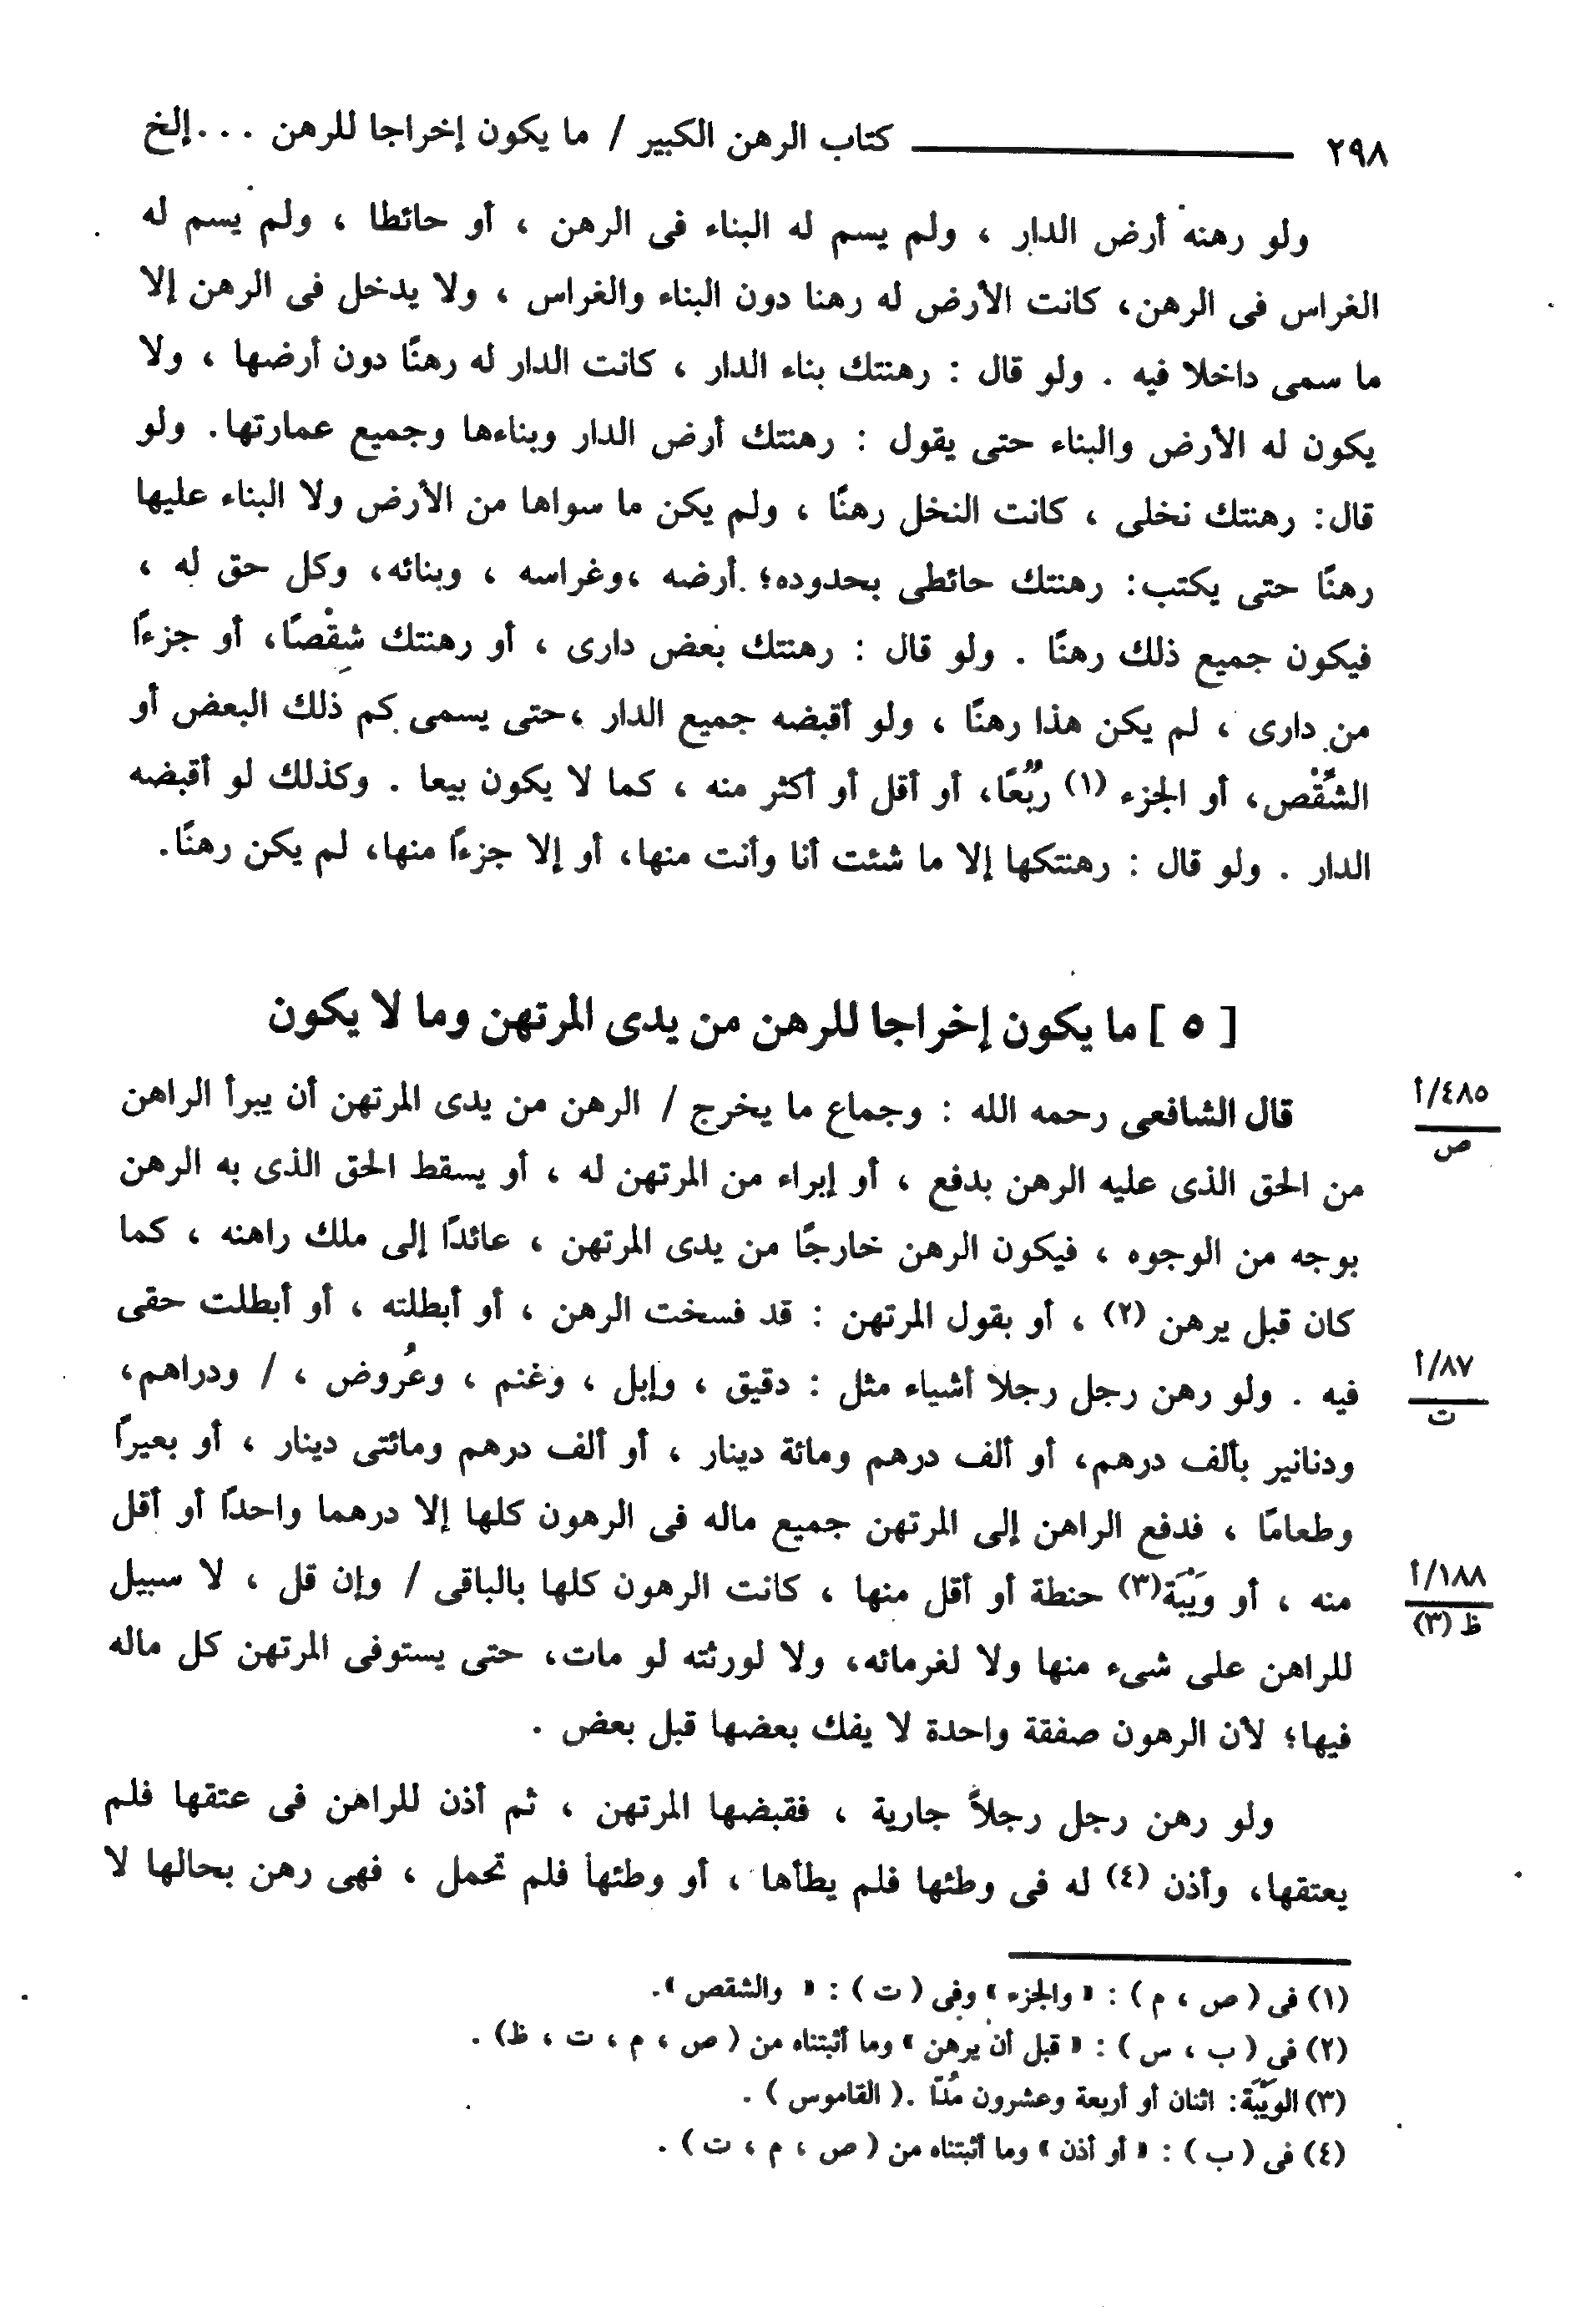 ٢٩٨ كتاب الرهن الكبير / ما يكون إخراجا للرهن . . . إلخ
ولو رهنه أرض الدار ، ولم يسم له البناء فى الرهن ، أو حائطا ، ولم يسم له
الغراس فى الرهن، كانت الأرض له رهنا دون البناء والغراس ، ولا يدخل فى الرهن إلا
ما سمى داخلا فيه . ولو قال : رهنتك بناء الدار ، كانت الدار له رهنًا دون أرضها ، ولا
يكون له الأرض والبناء حتى يقول : رهنتك أرض الدار وبناءها وجميع عمارتها. ولو
قال: رهنتك نخلى ، كانت النخل رهنًا ، ولم يكن ما سواها من الأرض ولا البناء عليها
رهنًا حتى يكتب: رهنتك حائطى بحدوده؛ أرضه ،وغراسه ، وبنائه، وكل حق له ،
فيكون جميع ذلك رهنًا . ولو قال : رهنتك بعض دارى ، أو رهنتك شِقْصًا، أو جزءًا
من دارى ، لم يكن هذا رهنًا ، ولو أقبضه جميع الدار ،حتى يسمى كم ذلك البعض أو
الشِّقْص، أو الجزء (١) رُبُعًا، أو أقل أو أكثر منه ، كما لا يكون بيعا . وكذلك لو أقبضه
الدار . ولو قال : رهنتكها إلا ما شئت أنا وأنت منها، أو إلا جزءًا منها، لم يكن رهنًا.
[ ٥ ] ما يكون إخراجا للرهن من يدى المرتهن وما لا يكون
قال الشافعى رحمه الله : وجماع ما يخرج / الرهن من يدى المرتهن أن يبرأ الراهن
٤٨٥/أ
ص
من الحق الذى عليه الرهن بدفع ، أو إبراء من المرتهن له ، أو يسقط الحق الذى به الرهن
بوجه من الوجوه ، فيكون الرهن خارجًا من يدى المرتهن ، عائدًا إلى ملك راهنه ، كما
كان قبل يرهن (٢) ، أو بقول المرتهن : قد فسخت الرهن ، أو أبطلته ، أو أبطلت حقى
فيه . ولو رهن رجل رجلا أشياء مثل : دقيق ، وإبل ، وغنم ، وعُروض ، / ودراهم،
٨٧/أ
ت
ودنانير بألف درهم، أو ألف درهم ومائة دينار ، أو ألف درهم ومائتى دينار ، أو بعيرًا
وطعامًا ، فدفع الراهن إلى المرتهن جميع ماله فى الرهون كلها إلا درهما واحدًا أو أقل
منه ، أو وَيْبَة(٣) حنطة أو أقل منها ، كانت الرهون كلها بالباقى / وإن قل ، لا سبيل
١٨٨/أ
ظ (٣)
للراهن على شىء منها ولا لغرمائه، ولا لورثته لو مات، حتى يستوفى المرتهن كل ماله
فيها؛ لأن الرهون صفقة واحدة لا يفك بعضها قبل بعض .
ولو رهن رجل رجلاً جارية ، فقبضها المرتهن ، ثم أذن للراهن فى عتقها فلم
يعتقها، وأذن (٤) له فى وطئها فلم يطأها ، أو وطئها فلم تحمل ، فهى رهن بحالها لا
(١) فى ( ص ، م ) : « والجزء » وفى ( ت ) : « والشقص ».
(٢) فى ( ب ، س ) : « قبل أن يرهن » وما أثبتناه من ( ص ، م ، ت ، ظ) .
(٣) الوَيْبَة: اثنان أو أربعة وعشرون مُدّا .( القاموس ) .
(٤) فى ( ب ) : « أو أذن » وما أثبتناه من ( ص ، م ، ت ) .